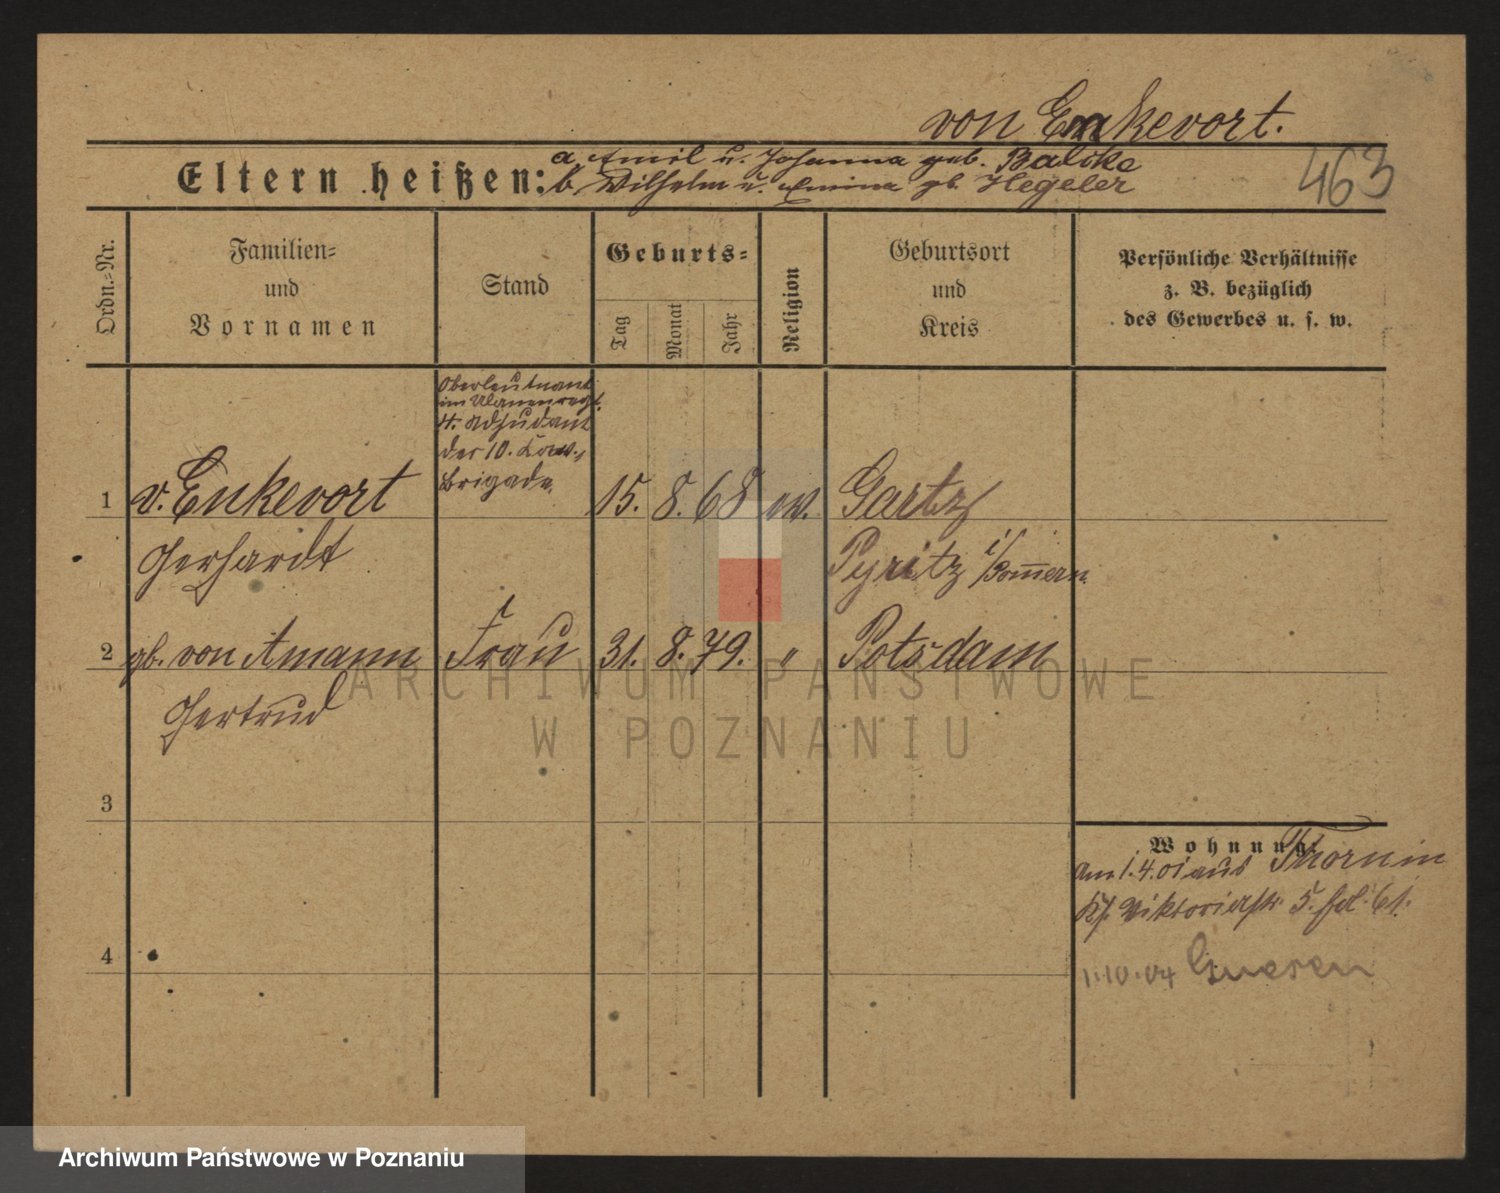 von Enkevort.
463
Eltern heißen: a, Emil u. Johanna geb. Balcke
b, Wilhelm u. Emina gb. Hegeler
Ordn.-Nr.
Familien-
und
Vornamen
Stand
Geburts-
Tag
Monat
Jahr
Religion
Geburtsort
und
Kreis
Persönliche Verhältnisse
z. B. bezüglich
des Gewerbes u. s. w.
Oberleutnant
im Ulanenregt.
4. Adjudant
der 10. Kav.,
Brigade,
1 v. Enkevort 15. 8. 68 ev. Gartz
Gerhardt Pyritz i/Pommern
2 gb. von Amann Frau 31. 8. 79. " Potsdam
Gertrud
3
Wohnung:
am 1.4.01 aus Thorn in
Viktoriastr. 5. 61.
4
1.10.04 Gnesen
ARCHIWUM PAŃSTWOWE
W POZNANIU
Archiwum Państwowe w Poznaniu